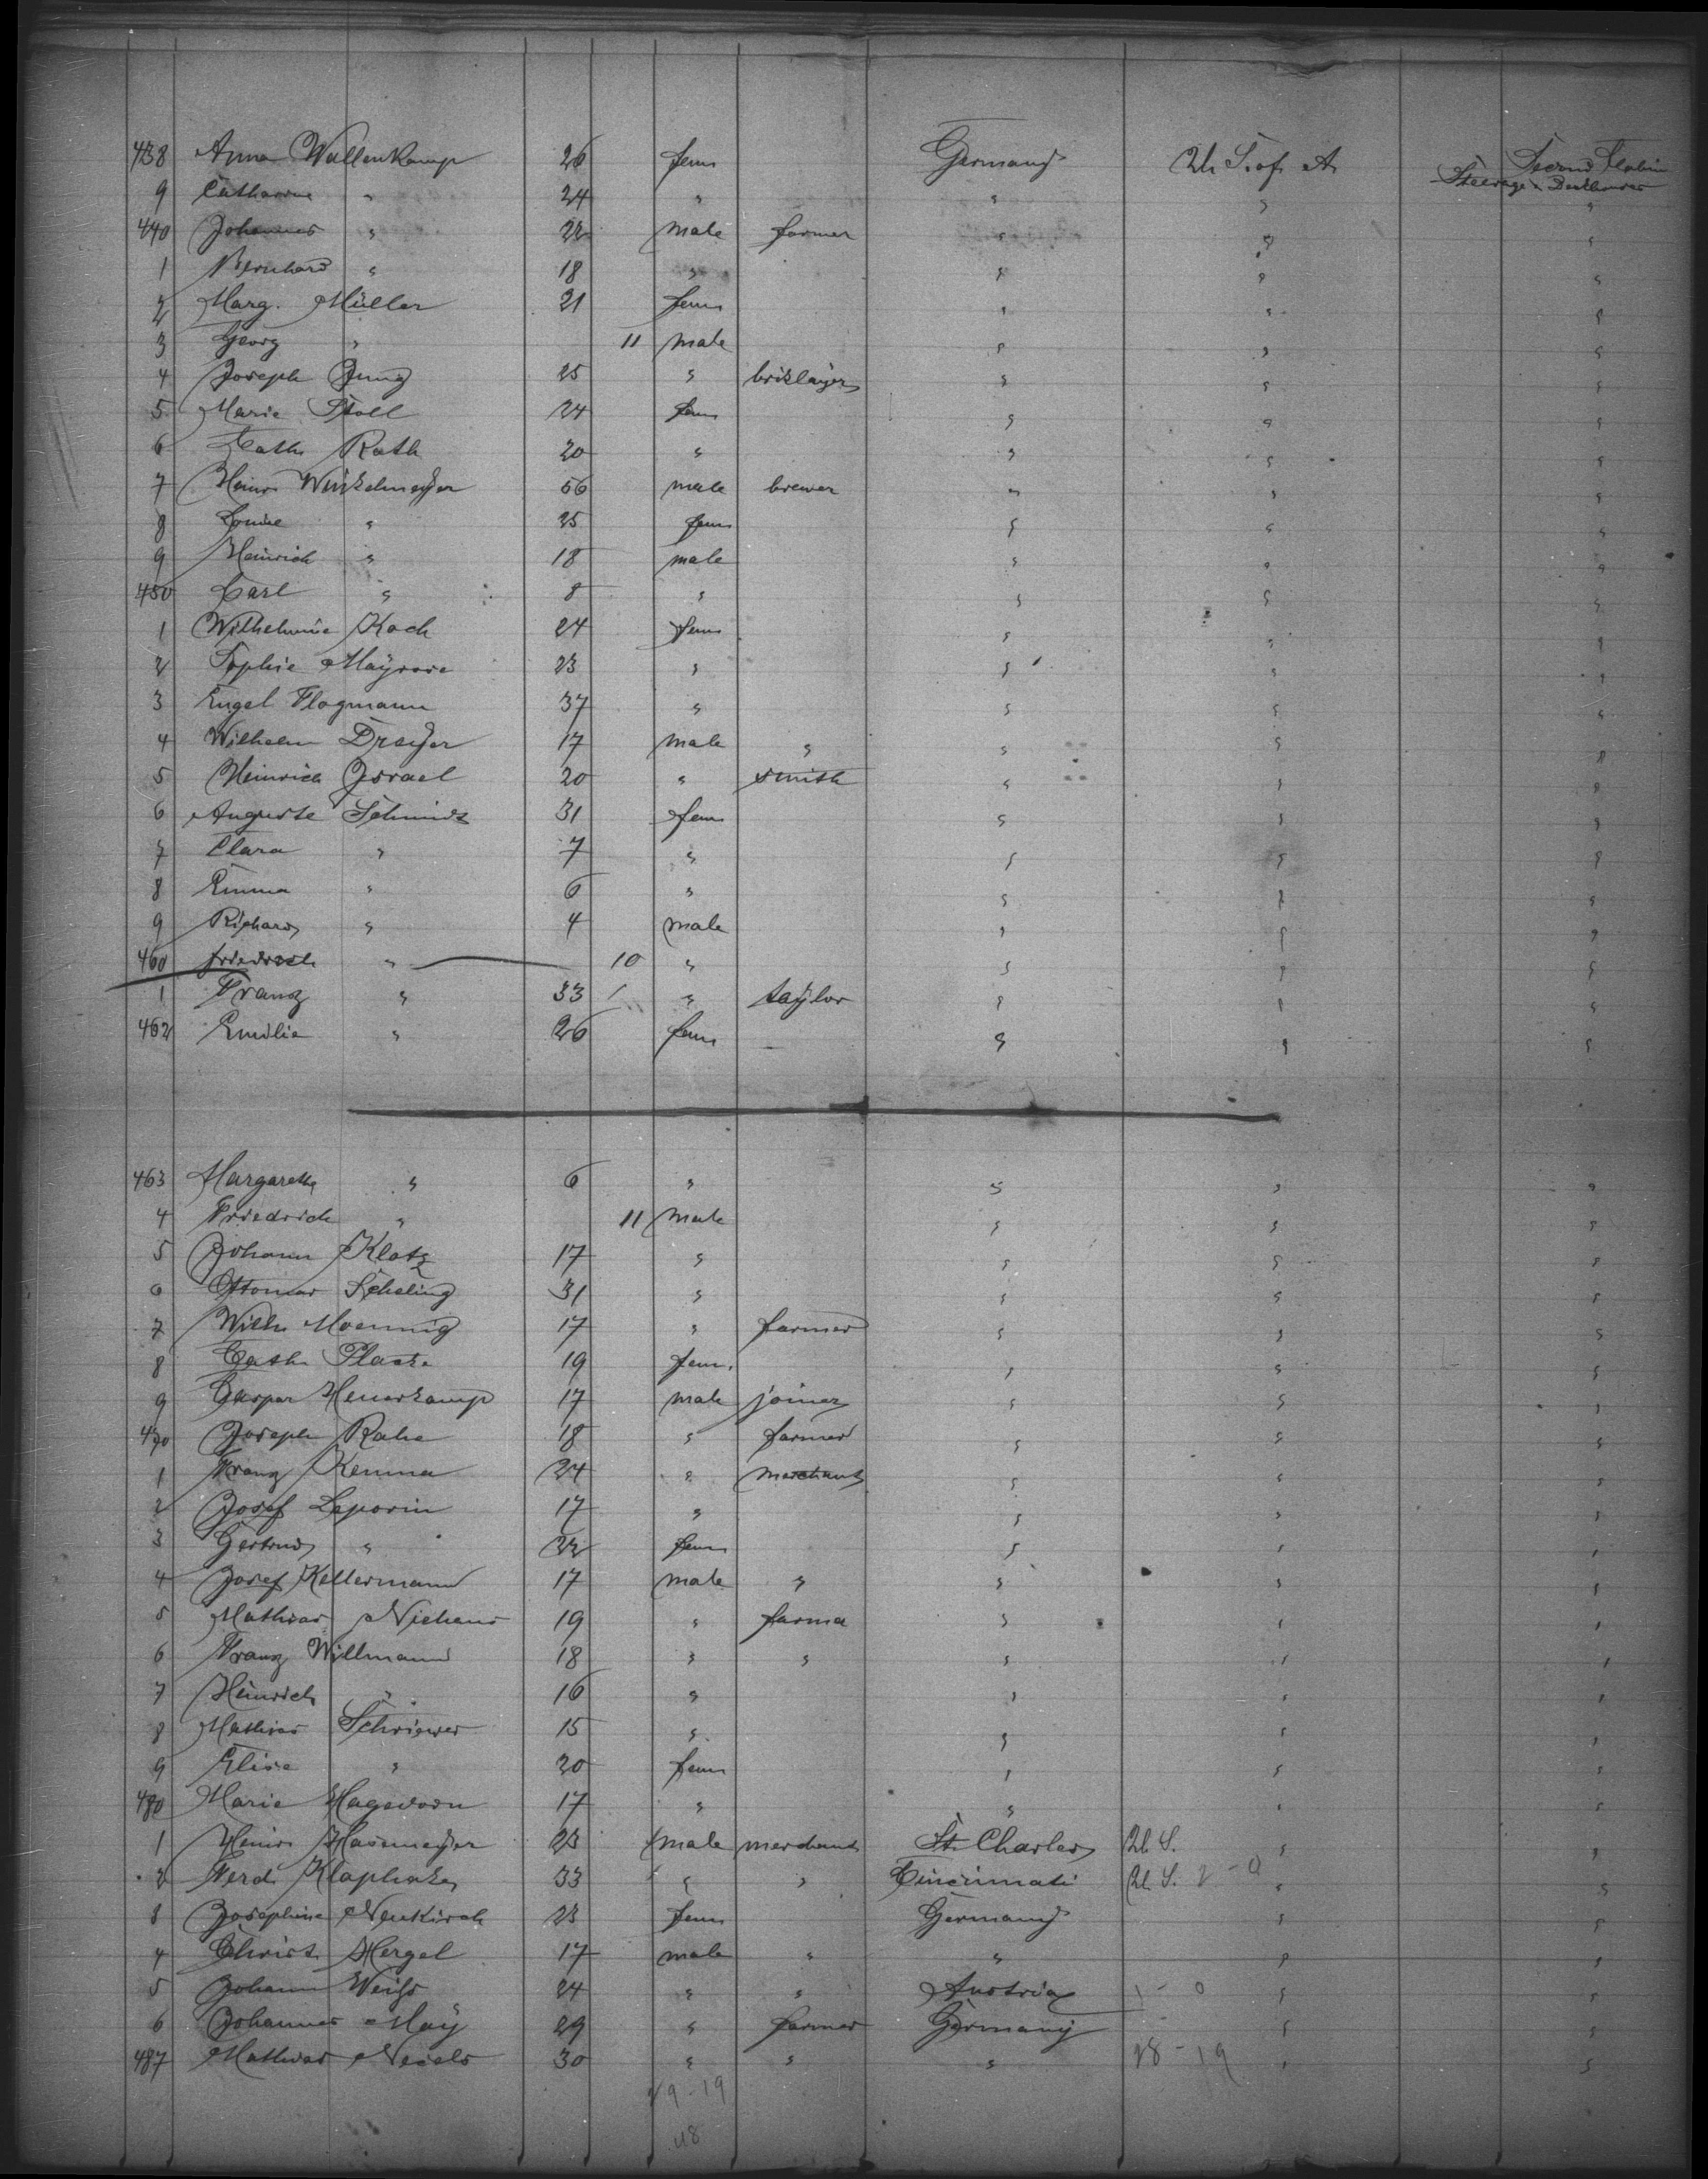 438 Anna Wallenkamp 26 fem Germany U. S. of A. Second Cabin
Steerage & Deckhouses
9 Catharine " 24 " " " "
440 Johannes " 22 male farmer " " "
1 Bernhard " 18 " " " "
2 Marg. Müller 21 fem " " "
3 Georg " 11 male " " "
4 Joseph Jung 25 " briklayer " " "
5 Marie Stoll 24 fem " " "
6 Cath. Rath 20 " " " "
7 Heinr. Winkelmeyer 56 male brewer " " "
8 Louise " 25 fem " " "
9 Heinrich " 18 male " " "
450 Carl " 8 " " " "
1 Wilhelmine Koch 24 fem " " "
2 Sophie Mayrose 23 " " " "
3 Engel Flogmann 37 " " " "
4 Wilhelm Dreyer 17 male " " " "
5 Heinrich Israel 20 " smith " " "
6 Auguste Schmidt 31 fem " " "
7 Clara " 7 " " " "
8 Emma " 6 " " " "
9 Richard " 4 male " " "
460 friedrich " 10 " " " "
1 Franz " 33 " taylor " " "
462 Emilie " 26 fem " " "
463 Margarethe " 6 " " " "
4 Friedrich " 11 male " " "
5 Johann Klotz 17 " " " "
6 Ottomar Scheling 31 " " " "
7 Wilh. Moennig 17 " farmer " " "
8 Cath. Placke 19 fem. " " "
9 Caspar Heuerkamp 17 male joiner " " "
470 Joseph Rahe 18 " farmer " " "
1 Franz Kemma 24 " merchant " " "
2 Josef Leporin 17 " " " "
3 Gertrud " 22 fem " " "
4 Josef Kellermann 17 male " " " "
5 Mathias Niehaus 19 " farmer " " "
6 Franz Willmann 18 " " " " "
7 Heinrich " 16 " " " "
8 Mathias Schriewer 15 " " " "
9 Elise " 20 fem " " "
480 Marie Hagedorn 17 " " " "
1 Heinr. Hasemeyer 23 male merchant St. Charles U. S. " "
2 Ferd. Klaphake 33 " " Cincinnati U. S. 2 - 0 " "
3 Josephine Neukirch 23 fem Germany " "
4 Christ. Hergel 17 male " " " "
5 Johann Weihs 24 " " Austria 1 - 0 " "
6 Johannes May 29 " farmer Germany " "
487 Mathias 30 " " " 28 - 19 " "
29 - 19
48